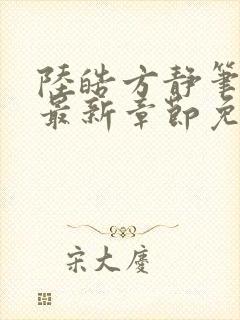 陸皓方靜筆
最新章節免
宋大慶